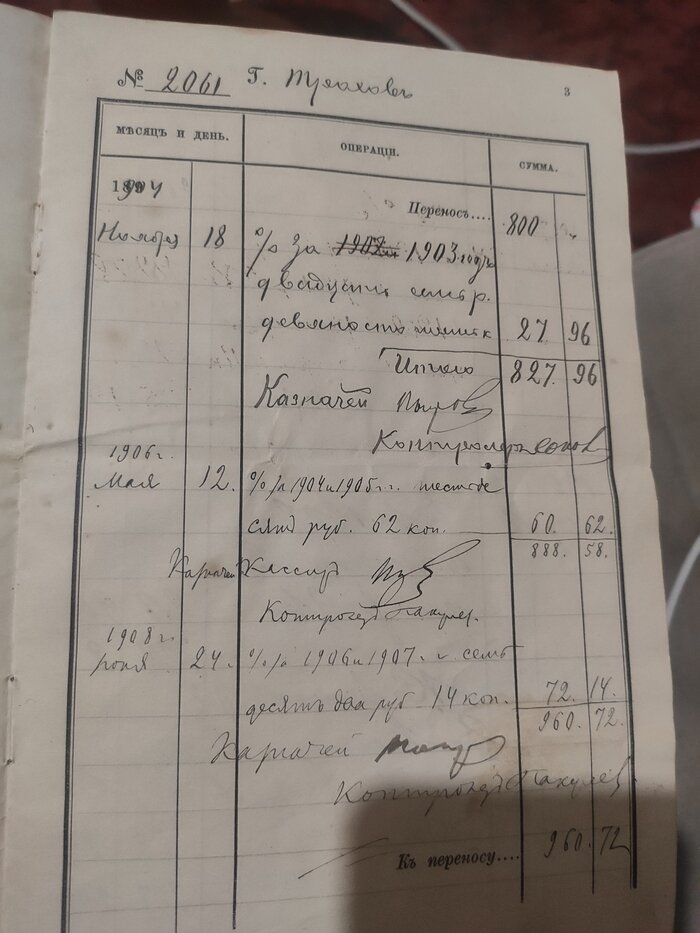 № 2061 Г. 3
МѢСЯЦЪ И ДЕНЬ. ОПЕРАЦІИ. СУММА.
1904 Переносъ.... 800 -
Ноября 18 % за 1903 годъ
двадцать семь р.
девяносто шесть к 27. 96
Итого 827. 96
Казначей
Контролеръ
1906 г.
Мая 12. % за 1904 и 1905 г.г. шестьде
сятъ руб. 62 коп. 60. 62.
888. 58.
Казначей Кассиръ
Контролеръ
1908 г.
24. % за 1906 и 1907. г. семь
десятъ два руб 14 коп. 72. 14.
960. 72.
Казначей
Контролеръ
Къ переносу.... 960. 72